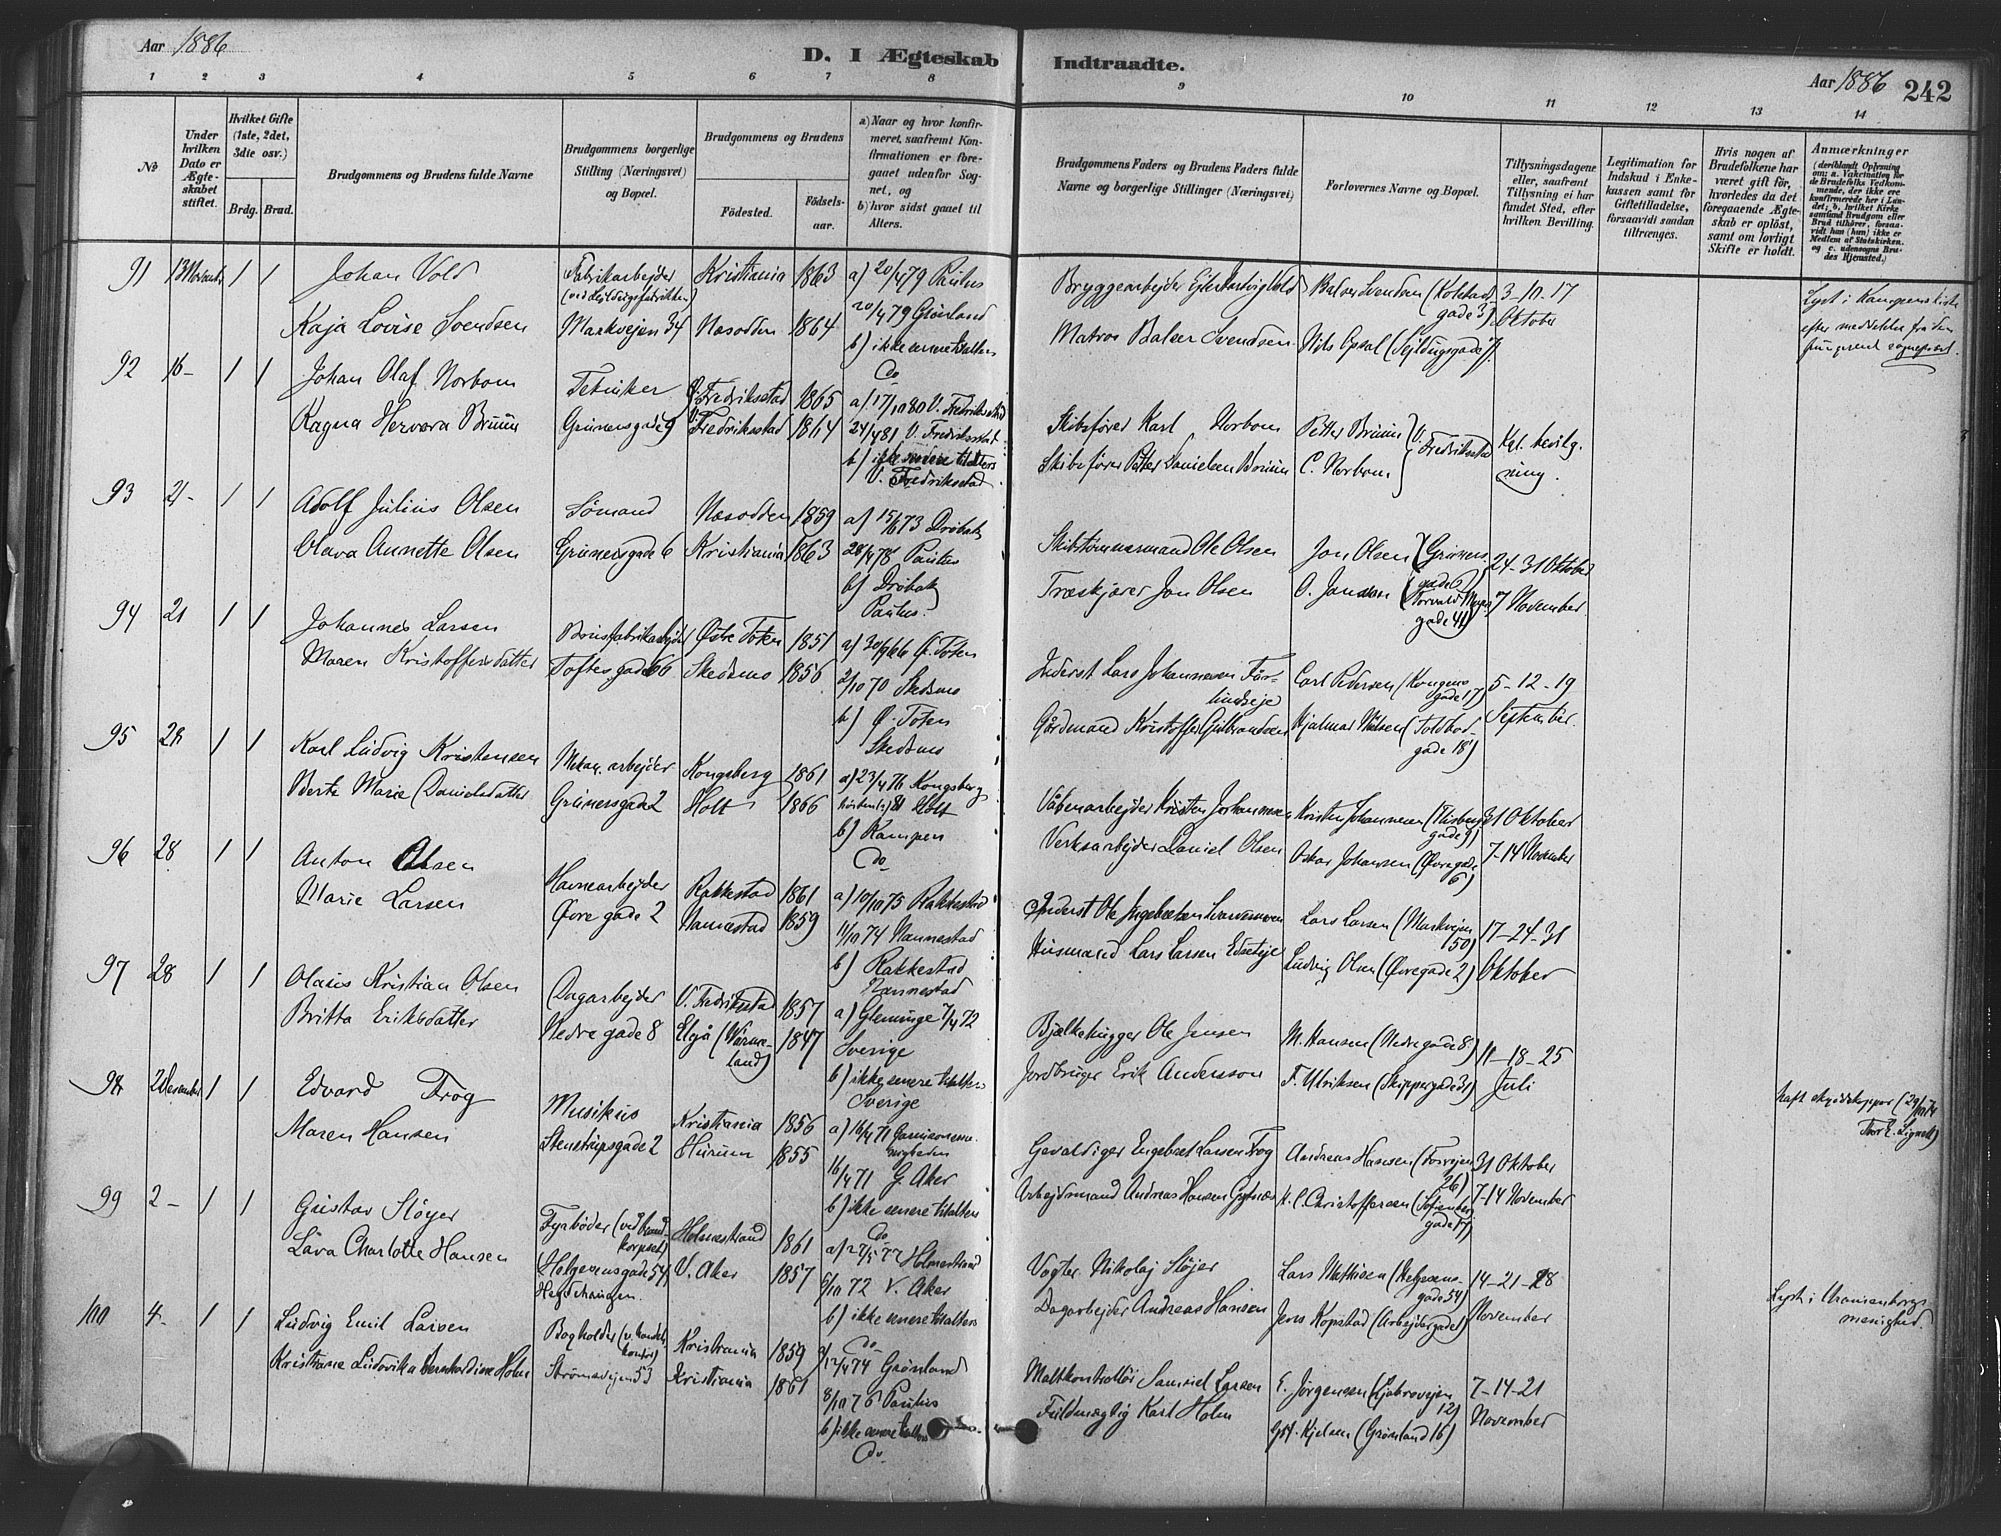 Aar 1886
D. I Ægteskab Indtraadte.
Aar 1886 242
1 2 3 4 5 6 7 8 9 10 11 12 13 14
No
Under hvilken Dato er Ægteskabet stiftet.
Hvilket Gifte (1ste, 2det, 3die osv.)
Brdg. Brud.
Brudgommens og Brudens fulde Navne
Brudgommens borgerlige Stilling (Næringsvei) og Bopæl.
Brudgommens og Brudens
Fødested.
Fødselsaar.
a) Naar og hvor konfirmeret, saafremt Konfirmationen er foregaaet udenfor Sognet, og
b) hvor sidst gaaet til Alters.
Brudgommens Faders og Brudens Faders fulde Navne og borgerlige Stillinger (Næringsvei)
Forlovernes Navne og Bopæl.
Tillysningsdagene eller, saafremt Tillysning ei har fundet Sted, efter hvilken Bevilling.
Legitimation for Indskud i Enkekassen samt for Giftetilladelse, forsaavidt saadan tiltrænges.
Hvis nogen af Brudefolkene har været gift før, hvorledes da det foregaaende Ægteskab er opløst, samt om lovligt Skifte er holdt.
Anmærkninger
(deriblandt Oplysning om: a. Vakcination for de Brudefolks Vedkommende, der ikke ere konfirmerede her i Landet; b. hvilket Kirkesamfund Brudgom eller Brud tilhører, forsaavidt han (hun) ikke er Medlem af Statskirken, og c. udensogns Brudes Hjemsted.)
91 13 November 1 1 Johan Vold Fabrikarbejder (ved Sejldugsfabrikken) Kristiania 1863 a) 20/4 79 Paulus Bryggearbejder Ejlert Hartvig Vold Balser Svendsen (Kolstadgade 3) 3-10-17 Oktober
Kaja Lovise Svendsen Markvejen 34 Næsodden 1864 20/4 79 Grønland b) ikke senere til alters Matros Balser Svendsen Nils Opsal (Sejldugsgade 7)
Do
Lyst i Kampens kirke efter meddelelse fra den fungerende sognepræst.
92 16- 1 1 Johan Olaf Norbom Tekniker Fredriksstad 1865 a) 17/10 80 V. Fredriksstad Skibsfører Karl Norbom Petter Bruun V. Fredriksstad Kgl. bevilgning.
Ragna Hervara Bruun Grünersgade 9 Fredriksstad 1864 24/4 81 V. Fredriksstad b) ikke senere til alters V. Fredriksstad Skibsfører Petter Danielsen Bruun C. Norbom
93 21- 1 1 Adolf Julius Olsen Sømand Næsodden 1859 a) 15/6 73 Drøbak Skibstømmermand Ole Olsen Jon Olsen (Grünersgade 6) 24-31 Oktober
Olava Annette Olsen Grünersgade 6 Kristiania 1863 28/4 78 Paulus b) Drøbak Paulus. Træskjærer Jon Olsen O. Jansen (Torvald Meyersgade 41) 7 November
94 21 1 1 Johannes Larsen Brusfabrikarbejder Østre Toten 1851 a) 30/9 66 Ø. Toten Inderst Lars Johannesen Carl Pedersen (Kongensgade 17) 5-12-19 September.
Maren Kristoffersdatter Toftesgade 66 Skedsmo 1856 2/10 70 Skedsmo b) Ø. Toten Skedsmo Gårdmand Kristoffer Gulbrandsen Hjalmar Nilsen (Toldbodgade 18)
95 28 1 1 Karl Ludvig Kristensen Mekan. arbejder Kongsberg 1861 a) 23/4 76 Kongsberg Våbenarbejder Kristen Johannesen Kristen Johannesen 31 Oktober
Berte Marie Danielsdatter Grünersgade 2 Holt 1866 81 Holt b) Kampen Verksarbejder Daniel Olsen Oskar Johansen (Øvregade 6) 7-14 November
Do
96 28. 1 1 Anton Olsen Havnearbejder Rakkestad 1861 a) 10/10 75 Rakkestad Inderst Ole Ingebretsen Lars Larsen (Markvejen 50) 17-24-31 Oktober
Marie Larsen Øvregade 2 Nannestad 1859 11/10 74 Nannestad b) Rakkestad Nannestad Husmand Lars Larsen Ludvig Olsen (Øvregade 2)
97 28 1 1 Olaus Kristian Olsen Dagarbejder V. Fredriksstad 1857 a) Glemminge 7/4 72 Bjælkehugger Ole Jensen M. Hansen (Nedregade 8) 11-18-25 Juli
Britta Eriksdatter Nedregade 8 Elgå (Värmeland) 1847 Sverige b) ikke senere til alters Sverige Jordbruger Erik Andersson F. Ulriksen (Skippergade 31)
98 2 Desember 1 1 Edvard Frog Musikus Kristiania 1856 a) 16/4 71 Garnisonsmenigheden Gevaldiger Engebret Larsen Frog Andreas Hansen (Fossvejen 26) 31 Oktober
Maren Hansen Stenstrupsgade 2 Hurum 1855 16/4 71 G. Aker b) ikke senere til alters Arbejdsmand Andreas Hansen H. C. Christoffersen (Sofienberggade 17) 7-14 November
Do
haft skyddskoppor
99 2- 1 1 Gustav Sløger Fyrbøder (ved brandkorpset) Holmestrand 1861 a) 27/5 77 Holmestrand Vogter Nikolaj Sløjer Lars Mathisen (Helgesensgade 54) 14-21-28 November
Lava Charlotte Hansen Helgesensgade 54 Hegdehaugen. V. Aker 1857 6/10 72 V. Aker b) ikke senere til alters Dagarbejder Andreas Hansen Jens Kopstad (Arbejdergade)
Do
Lyst i Uranienborgs menighed.
100 4- 1 1 Ludvig Emil Larsen Bogholder Kristiania 1859 a) 12/4 74 Grønland Maltkontrollør Samuel Larsen E. Jørgensen (Ljabrovejen 12) 7-14-21 November
Kristiane Ludovika Bernhardine Holm Strømsvejen 53 Kristiania 1861 8/10 76 Paulus b) ikke senere til alters Fuldmægtig Karl Holm Kjelsen (Grønland 16)
Do